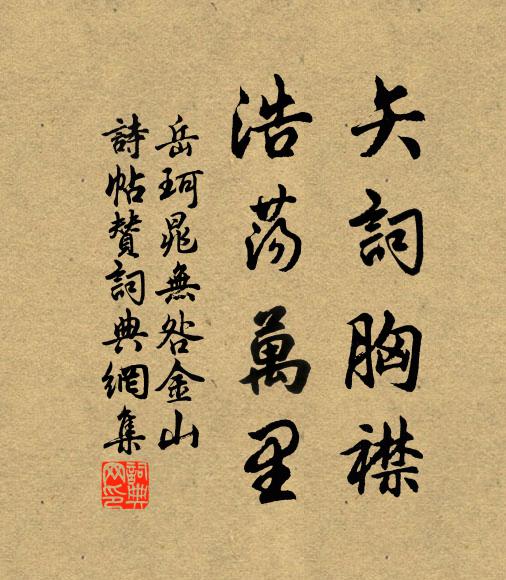 矢詞胸襟
浩蕩萬里
岳珂晁無咎金山
詩帖贊詞典網集
詞典
网印